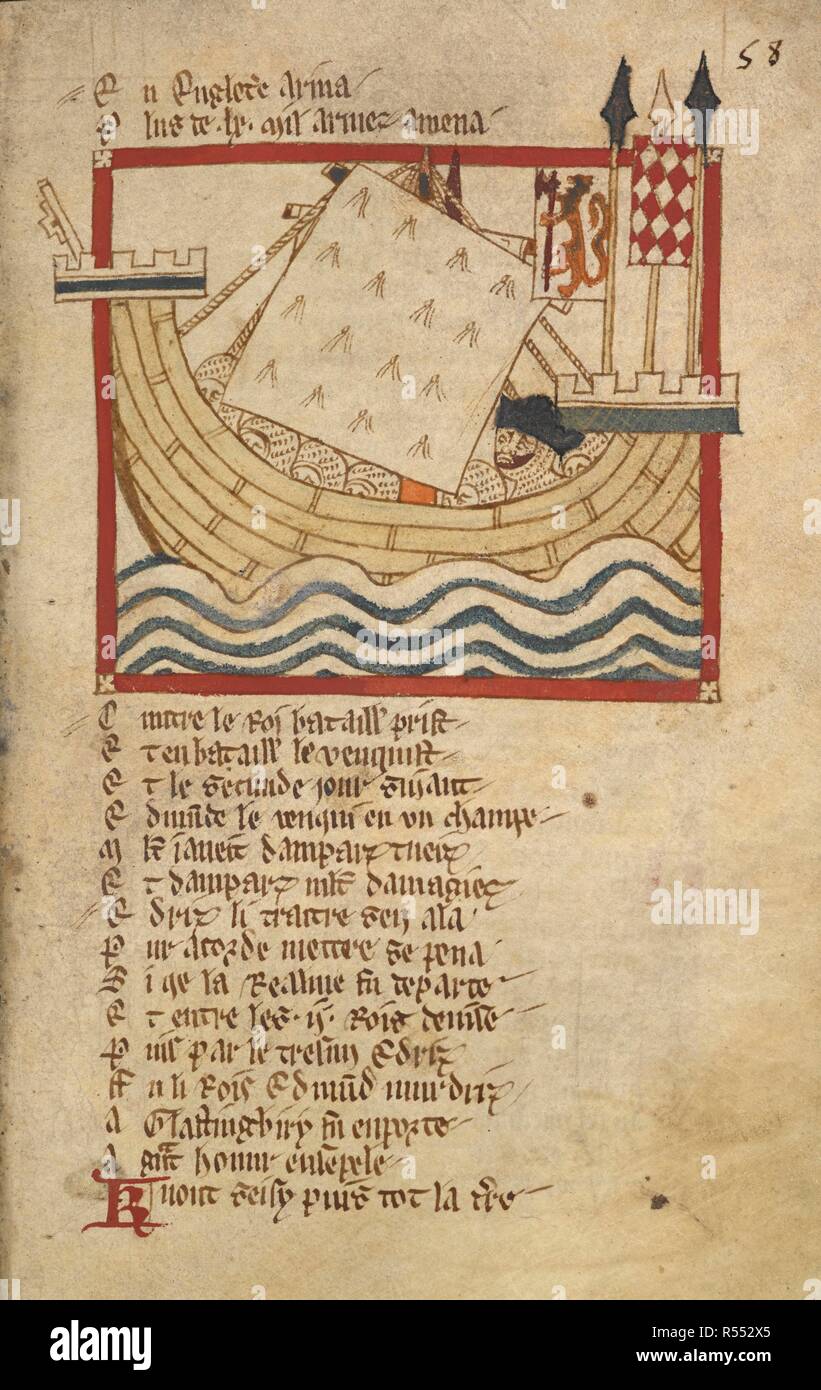 58
E n Engleťe ariua
P lus de .lx. mil armez amena
C ontre le Roi bataill prist
E t en bataill le venquist
E t le secunde jour suiant
E dmūde le venqui en vn champe
M lt̄ i aueit dampartz tueiz
E t dampartz mlt̄ damagiez
E driz li traitre sen ala
P ur acorde mettre se pena
S i qe la Realme fu departe
E t entre les .ij. Rois deuise
P uis par le Edriz
F u li Rois Edmūd murdriz
A Glastingbiry fu enporte
A gnt honur enseuele
K nout seisy puis tot la tr̄e
alamy
Image ID: R552X5
www.alamy.com